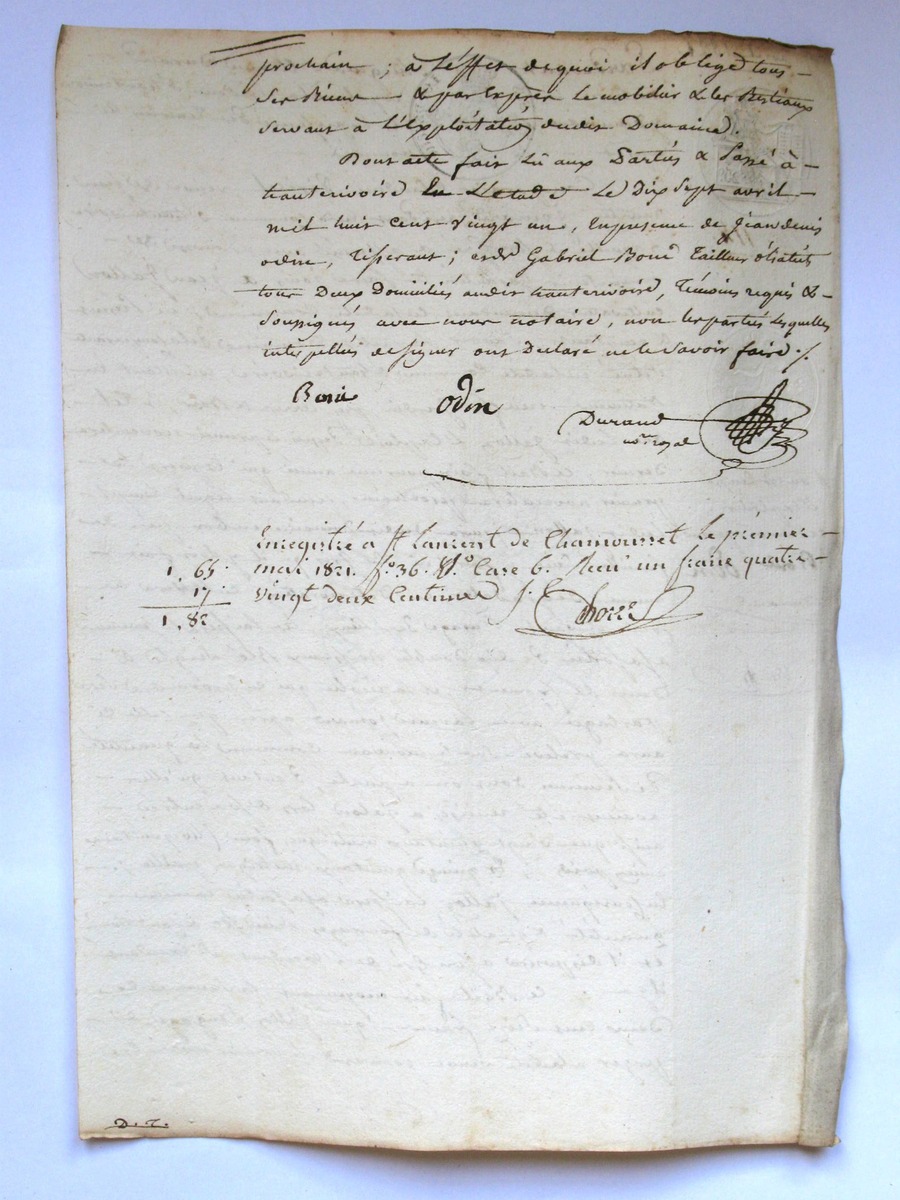 prochain ; à L'éffet de quoi il oblige tous
Ses Biens & par Exprès Le mobilier & les Bestiaux
servant à L'Exploitation dudit Domaine.
Dont acte fait Lu aux Parties & Passé à
hauterivoire En L'étude Le Dix Sept avril
mil huit cent vingt un, En presence de Jean denis
odin, Tisserant ; et de Gabriel Bonie Tailleur d'habits
tous Deux Domiciliés audit hauterivoire, Témoins requis &
Soussignés avec nous notaire, non les parties Lesquelles
interpellés de signer ont Déclaré ne le Savoir faire ./.
Bonie odin
Durand
no.re royal
Enregistré a St Laurent de Chamousset Le premier
mai 1821. fo. 36. Vo. Case 6. Reçu un franc quatre
vingt deux Centimes
1. 65
17
1. 82
D. T.